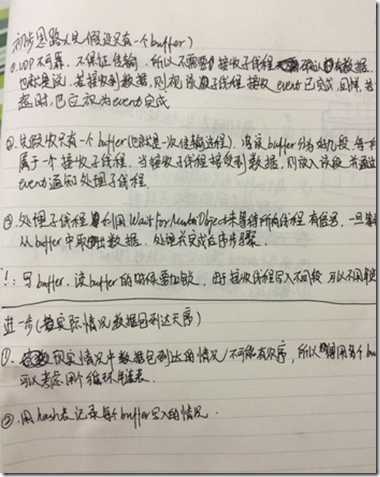 初步思路(只假设只有一个buffer)
①.UDP不可靠,不保证传输,所以不需要接收子线程 有数据.
也就是说,若接收到数据,则视该子线程接收event已完成,
也应视为event完成
②.先假设只有一个buffer(也就是一次传输过程).将该buffer分为 段.每
属于一个接收子线程.当接收子线程接收到数据,则放入该段,并通过
event通知处理子线程.
③.处理子线程 利用WaitforMultiObject来等待所有线程有信号.一旦
从buffer中取出数据.处理并完成后序步骤.
!:写buffer,读buffer的时候要加锁. 接收线程写入不同段,可以不用
进一步(按实际情况数据包到达无序)
①. 现实情况中数据包到达的情况不可能有次序,所以 用 个bu
可以考虑用个循环链表.
②.用hash表记录每个buffer写入的情况.